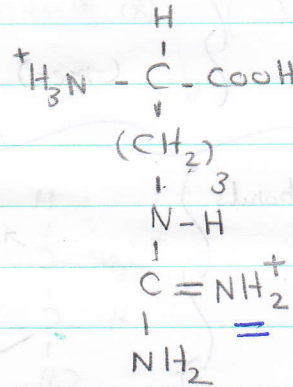 H
⁺H₃N - C - COOH
(CH₂)₃
N-H
C = NH₂⁺
NH₂